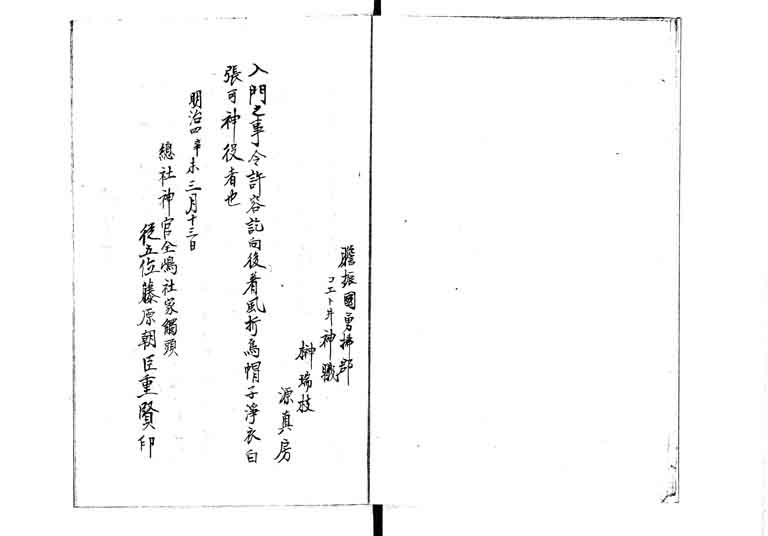 膽振國勇拂郡
コエトヰ神職
榊瑞枝
源真房
入門之事令許容訖向後着風折烏帽子淨衣白
張可神役者也
明治四辛未三月十三日
總社神官全嶋社家觸頭
従五位藤原朝臣重賢印